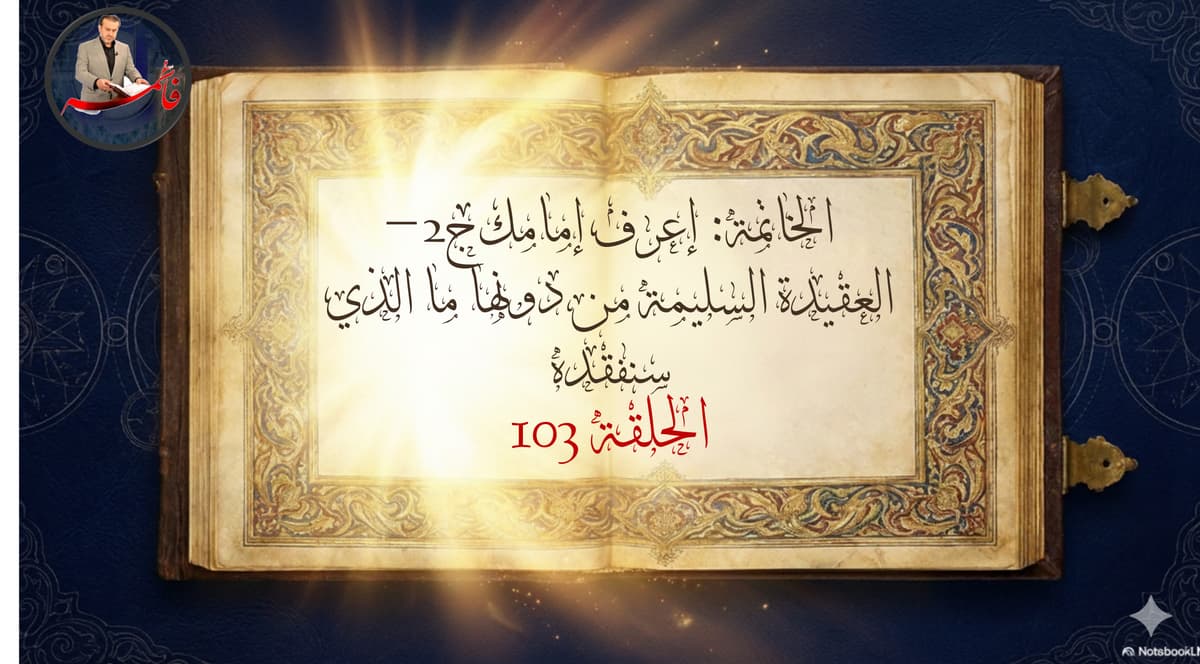 فاطمة
الخاتمة: إعرف إمامك ج2 –
العقيدة السليمة من دونها ما الذي
سنفقده
الحلقة 103
NotsbookL